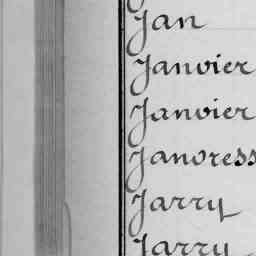 Jan
Janvier
Janvier
Janvress
Jarry
Jarry